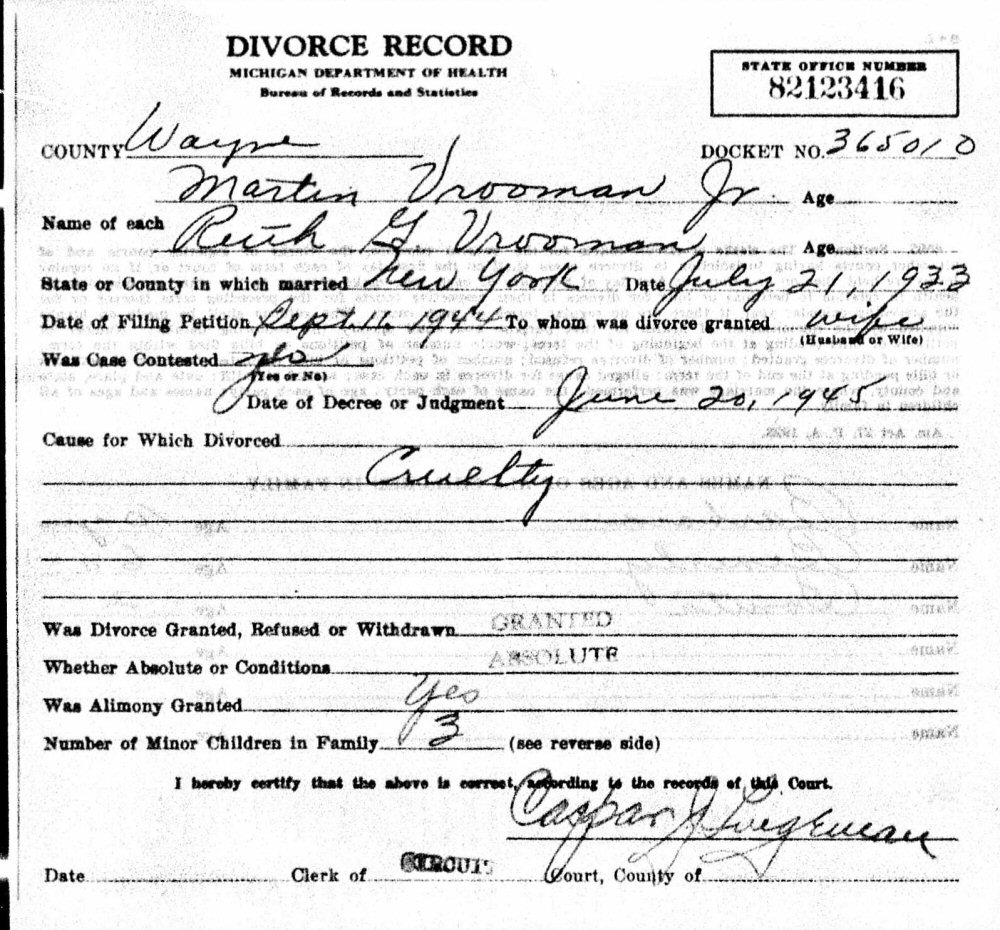 DIVORCE RECORD
MICHIGAN DEPARTMENT OF HEALTH
Bureau of Records and Statistics
STATE OFFICE NUMBER
82123416
COUNTY Wayne
DOCKET NO. 365010
Martin Vrooman Jr Age
Name of each
Ruth G Vrooman Age
State or County in which married New York Date July 21, 1933
Date of Filing Petition Sept. 11, 1944 To whom was divorce granted wife
(Husband or Wife)
Was Case Contested yes
(Yes or No)
Date of Decree or Judgment June 20, 1945
Cause for Which Divorced
Cruelty
Was Divorce Granted, Refused or Withdrawn GRANTED
Whether Absolute or Conditions ABSOLUTE
Was Alimony Granted Yes
Number of Minor Children in Family 3 (see reverse side)
I hereby certify that the above is correct, according to the records of this Court.
Caspar J Lingeman
Date Clerk of CIRCUIT Court, County of